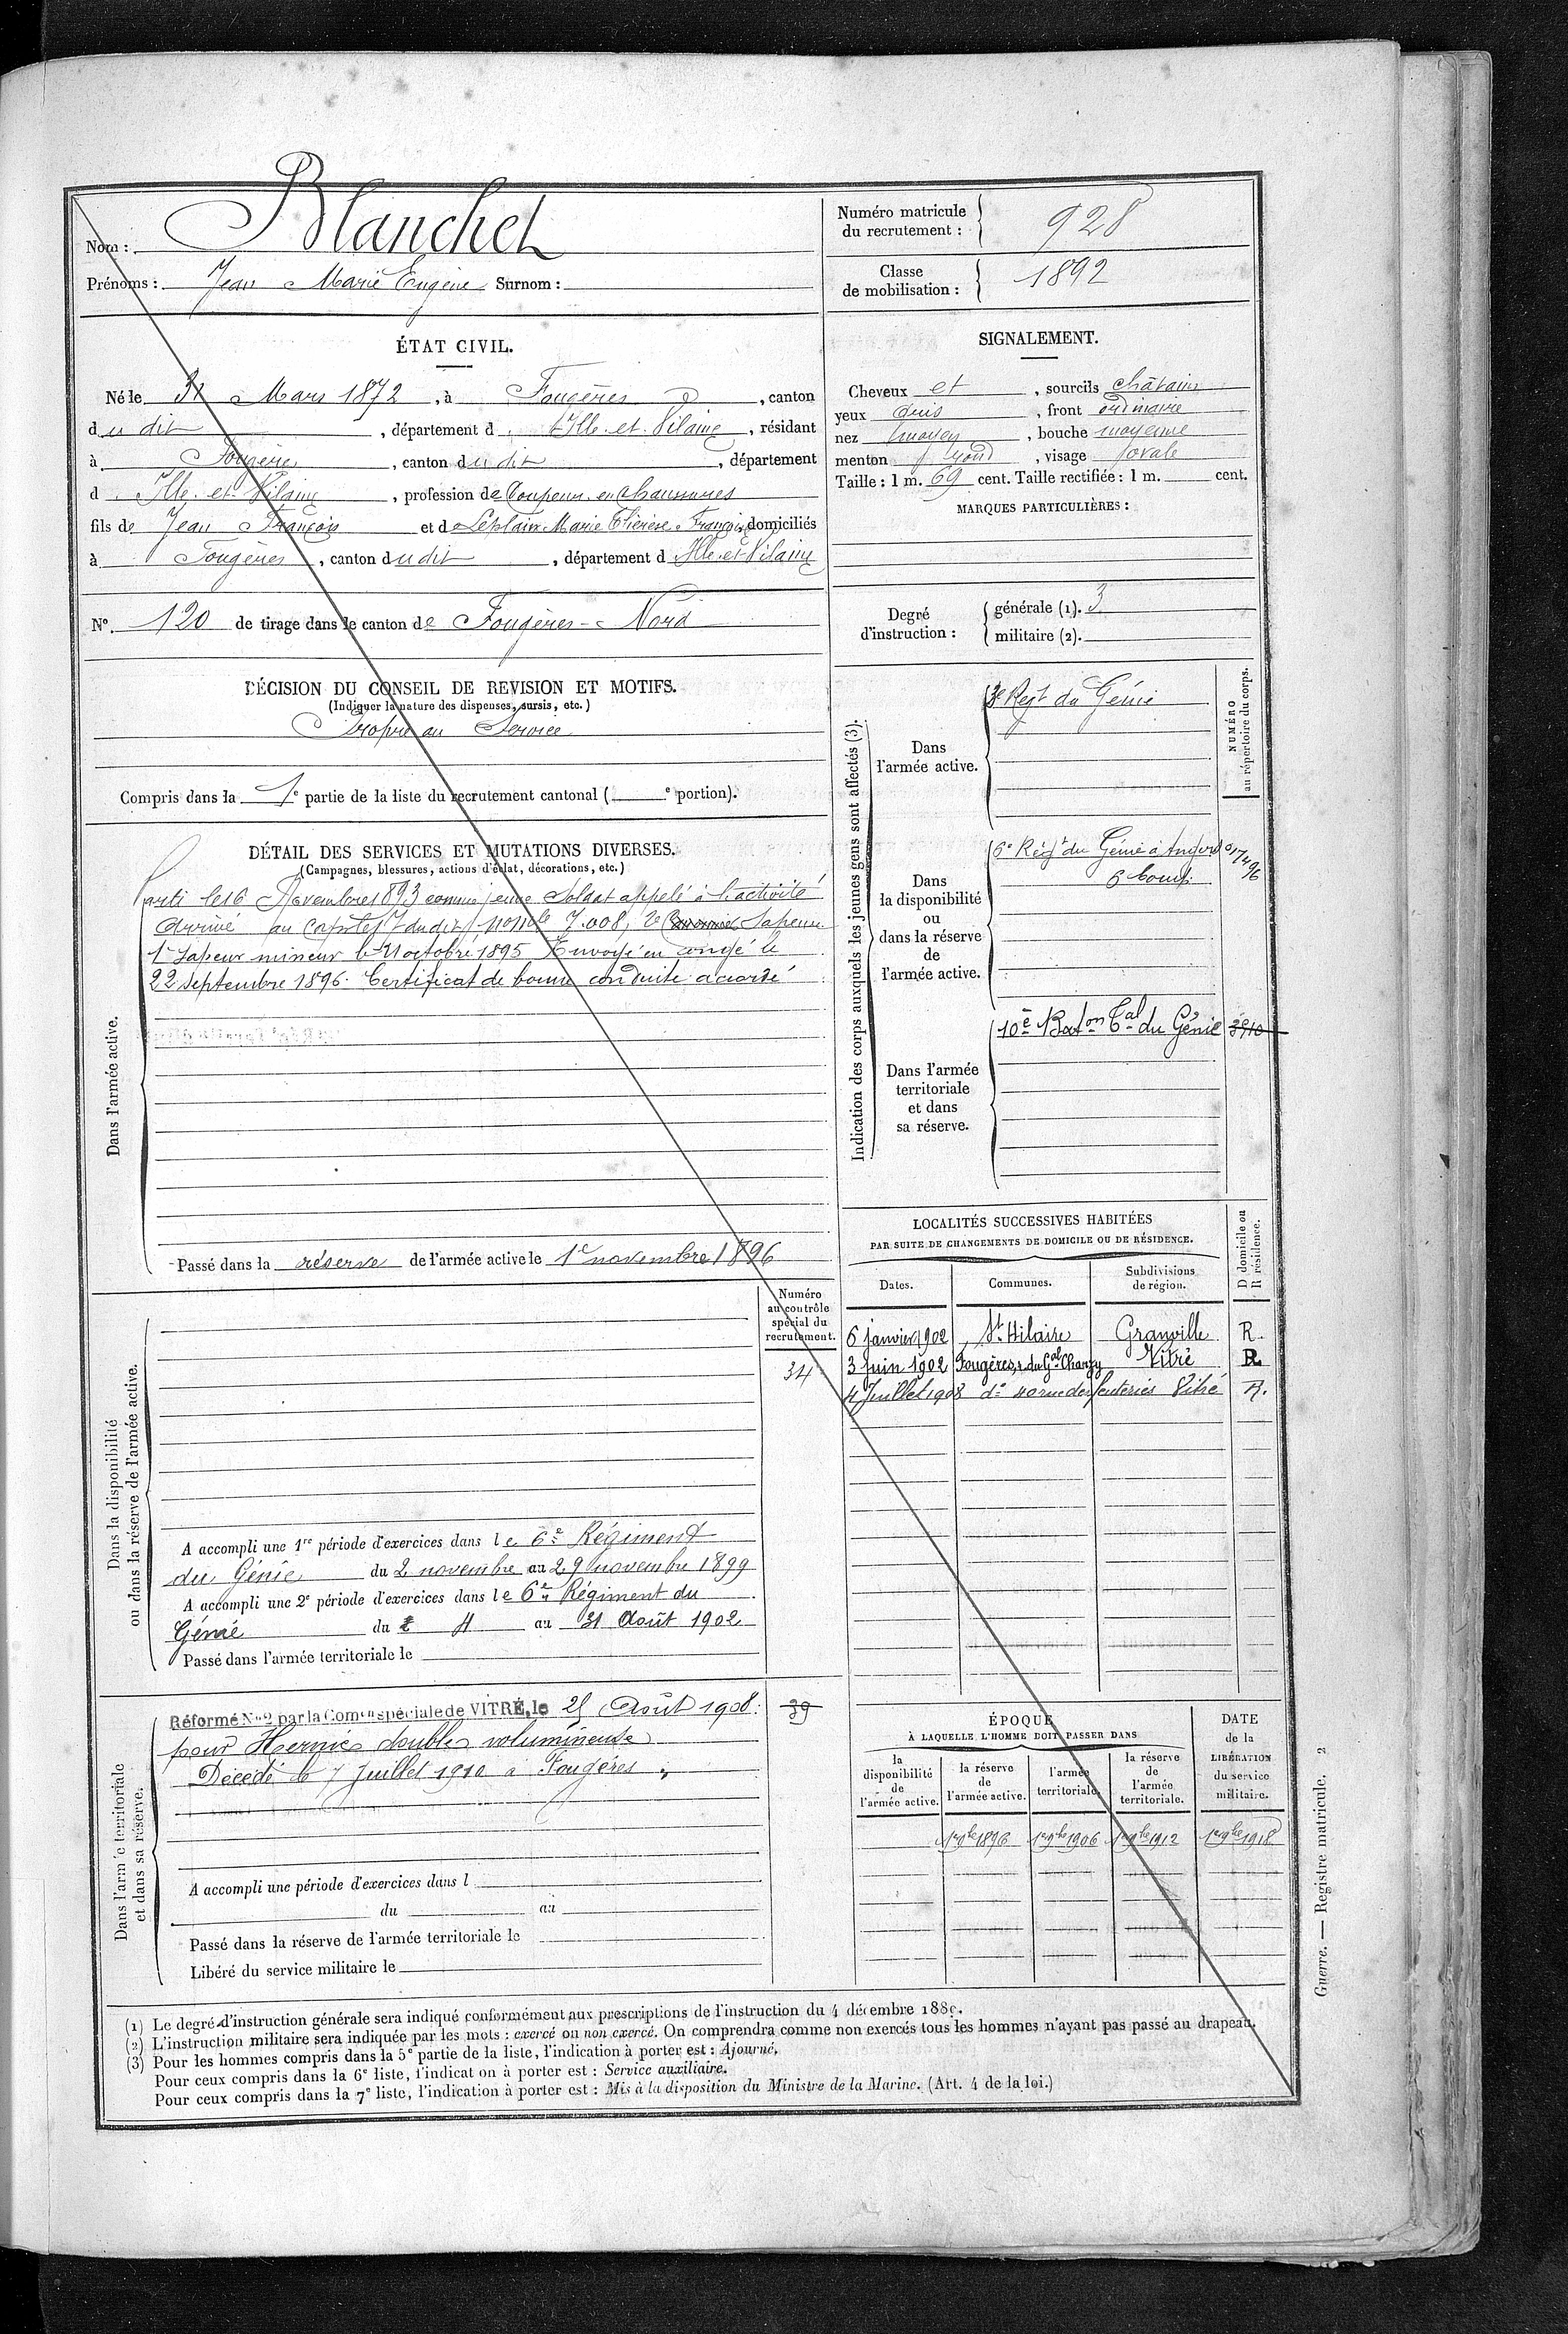 Nom : Blanchet
Prénoms : Jean Marie Eugène Surnom :
Numéro matricule du recrutement : 928
Classe de mobilisation : 1892
ÉTAT CIVIL.
Né le 31 Mars 1872, à Fougères, canton
du dit, département d Ille-et-Vilaine, résidant
à Fougères, canton du dit, département
d Ille-et-Vilaine, profession de Coupeur en chaussures
fils de Jean François et de Leplain Marie Thérèse Françoise, domiciliés
à Fougères, canton du dit, département d Ille-et-Vilaine
N°. 120 de tirage dans le canton de Fougères-Nord
SIGNALEMENT.
Cheveux et, sourcils châtains
yeux gris, front ordinaire
nez moyen, bouche moyenne
menton rond, visage ovale
Taille : 1 m. 69 cent. Taille rectifiée : 1 m. cent.
MARQUES PARTICULIÈRES :
Degré d'instruction : générale (1). 3
militaire (2).
DÉCISION DU CONSEIL DE REVISION ET MOTIFS.
(Indiquer la nature des dispenses, sursis, etc.)
Propre au Service
Compris dans la 1e partie de la liste du recrutement cantonal ( e portion).
DÉTAIL DES SERVICES ET MUTATIONS DIVERSES.
(Campagnes, blessures, actions d'éclat, décorations, etc.)
Dans l'armée active.
Parti le 16 Novembre 1893 comme jeune Soldat appelé à l'activité
Arrivé au corps le 17 du dit, no mle 7.008, 2e Sapeur
1er Sapeur mineur le 11 octobre 1895 Envoyé en congé le
22 Septembre 1896. Certificat de bonne conduite accordé
Passé dans la réserve de l'armée active le 1er novembre 1896
Indication des corps auxquels les jeunes gens sont affectés (3).
NUMÉRO au répertoire du corps.
Dans l'armée active.
3e Regt du Génie
Dans la disponibilité ou dans la réserve de l'armée active.
6e Régt du Génie à Angers
Dans l'armée territoriale et dans sa réserve.
10e Baton Tal du Génie 3910
LOCALITÉS SUCCESSIVES HABITÉES
PAR SUITE DE CHANGEMENTS DE DOMICILE OU DE RÉSIDENCE.
Dates. Communes. Subdivisions de région. D domicile ou R résidence.
6 janvier 1902 St Hilaire Granville R.
3 Juin 1902 Fougères, r. du Gal Chanzy Vitré R
4 Juillet 1908 do 40 rue des feuteries Vitré R.
Dans la disponibilité ou dans la réserve de l'armée active.
Numéro au contrôle spécial du recrutement.
34
A accompli une 1re période d'exercices dans le 6e Régiment
du Génie du 2 novembre au 29 novembre 1899
A accompli une 2e période d'exercices dans le 6e Régiment du
Génie du 4 au 31 Août 1902
Passé dans l'armée territoriale le
Dans l'armée territoriale et dans sa réserve.
Réformé No 2 par la Comon spéciale de VITRÉ, le 25 Août 1908. 39
pour Hernie double volumineuse
Décédé le 7 Juillet 1910 à Fougères
A accompli une période d'exercices dans l
du au
Passé dans la réserve de l'armée territoriale le
Libéré du service militaire le
ÉPOQUE
À LAQUELLE L'HOMME DOIT PASSER DANS
la disponibilité de l'armée active.
la réserve de l'armée active.
l'armée territoriale.
la réserve de l'armée territoriale.
DATE de la LIBÉRATION du service militaire.
1er 9bre 1896 1er 9bre 1906 1er 9bre 1912 1er 9bre 1918
(1) Le degré d'instruction générale sera indiqué conformément aux prescriptions de l'instruction du 4 décembre 1889.
(2) L'instruction militaire sera indiquée par les mots : exercé ou non exercé. On comprendra comme non exercés tous les hommes n'ayant pas passé au drapeau.
(3) Pour les hommes compris dans la 5e partie de la liste, l'indication à porter est : Ajourné.
Pour ceux compris dans la 6e liste, l'indication à porter est : Service auxiliaire.
Pour ceux compris dans la 7e liste, l'indication à porter est : Mis à la disposition du Ministre de la Marine. (Art. 4 de la loi.)
Guerre. — Registre matricule. 2